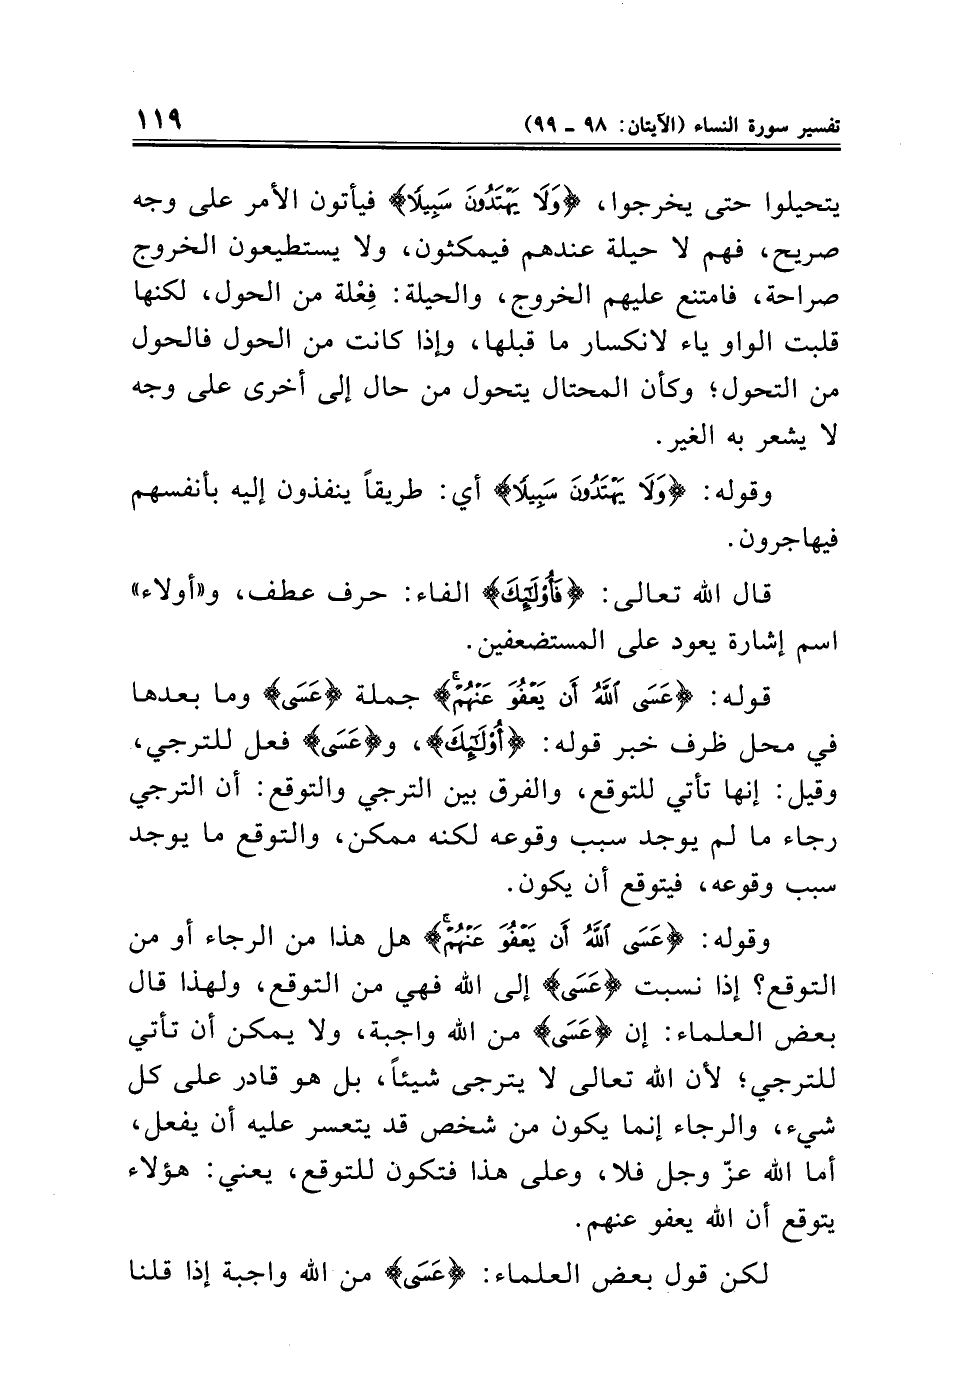 تفسير سورة النساء (الآيتان: ٩٨ ـ ٩٩)
١١٩
يتحيلوا حتى يخرجوا، ﴿وَلَا يَهْتَدُونَ سَبِيلًا﴾ فيأتون الأمر على وجه
صريح، فهم لا حيلة عندهم فيمكثون، ولا يستطيعون الخروج
صراحة، فامتنع عليهم الخروج، والحيلة: فِعْلة من الحول، لكنها
قلبت الواو ياء لانكسار ما قبلها، وإذا كانت من الحول فالحول
من التحول؛ وكأن المحتال يتحول من حال إلى أخرى على وجه
لا يشعر به الغير.
وقوله: ﴿وَلَا يَهْتَدُونَ سَبِيلًا﴾ أي: طريقاً ينفذون إليه بأنفسهم
فيهاجرون.
قال الله تعالى: ﴿فَأُوْلَٰٓئِكَ﴾ الفاء: حرف عطف، و«أولاء»
اسم إشارة يعود على المستضعفين.
قوله: ﴿عَسَى ٱللَّهُ أَن يَعْفُوَ عَنْهُمْۚ﴾ جملة ﴿عَسَى﴾ وما بعدها
في محل ظرف خبر قوله: ﴿أُوْلَٰٓئِكَ﴾، و﴿عَسَى﴾ فعل للترجي،
وقيل: إنها تأتي للتوقع، والفرق بين الترجي والتوقع: أن الترجي
رجاء ما لم يوجد سبب وقوعه لكنه ممكن، والتوقع ما يوجد
سبب وقوعه، فيتوقع أن يكون.
وقوله: ﴿عَسَى ٱللَّهُ أَن يَعْفُوَ عَنْهُمْۚ﴾ هل هذا من الرجاء أو من
التوقع؟ إذا نسبت ﴿عَسَى﴾ إلى الله فهي من التوقع، ولهذا قال
بعض العلماء: إن ﴿عَسَى﴾ من الله واجبة، ولا يمكن أن تأتي
للترجي؛ لأن الله تعالى لا يترجى شيئاً، بل هو قادر على كل
شيء، والرجاء إنما يكون من شخص قد يتعسر عليه أن يفعل،
أما الله عزّ وجل فلا، وعلى هذا فتكون للتوقع، يعني: هؤلاء
يتوقع أن الله يعفو عنهم.
لكن قول بعض العلماء: ﴿عَسَى﴾ من الله واجبة إذا قلنا